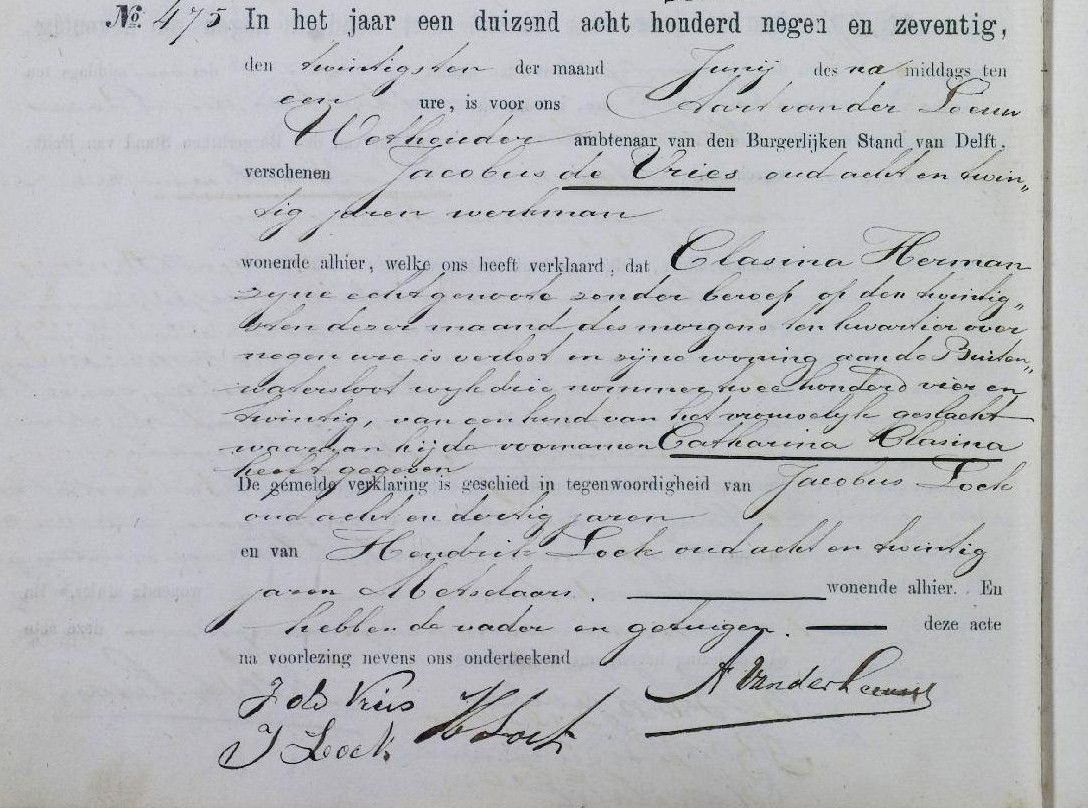 No 475 In het jaar een duizend acht honderd negen en zeventig,
den twintigsten der maand Junij des na middags ten
een ure, is voor ons Aart van der Leeuw
Wethouder ambtenaar van den Burgerlijken Stand van Delft,
verschenen Jacobus de Vries oud acht en twin„
tig jaren werkman
wonende alhier, welke ons heeft verklaard, dat Clasina Herman
zijne echtgenoote zonder beroep op den twintig„
sten dezer maand des morgens ten kwartier over
negen ure is verlost in zijne woning aan de Buiten„
watersloot wijk drie nommer twee honderd vier en
twintig, van een kind van het vrouwelijk geslacht
waaraan hij de voornamen Catharina Clasina
heeft gegeven
De gemelde verklaring is geschied in tegenwoordigheid van Jacobus Lock
oud acht en dertig jaren
en van Hendrik Lock oud acht en twintig
jaren Metselaars. wonende alhier. En
hebben de vader en getuigen. deze acte
na voorlezing nevens ons onderteekend
J de Vries H Lock A van der Leeuw
J Lock